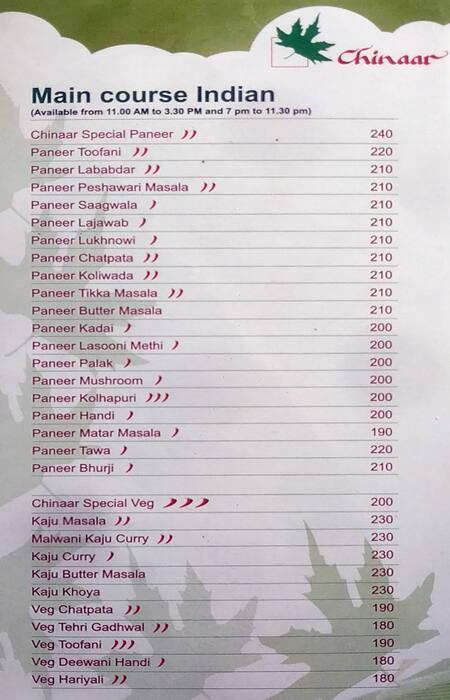 Chinaar
Main course Indian
(Available from 11.00 AM to 3.30 PM and 7 pm to 11.30 pm)
Chinaar Special Paneer 240
Paneer Toofani 220
Paneer Lababdar 210
Paneer Peshawari Masala 210
Paneer Saagwala 210
Paneer Lajawab 210
Paneer Lukhnowi 210
Paneer Chatpata 210
Paneer Koliwada 210
Paneer Tikka Masala 210
Paneer Butter Masala 210
Paneer Kadai 200
Paneer Lasooni Methi 200
Paneer Palak 200
Paneer Mushroom 200
Paneer Kolhapuri 200
Paneer Handi 200
Paneer Matar Masala 190
Paneer Tawa 220
Paneer Bhurji 210
Chinaar Special Veg 200
Kaju Masala 230
Malwani Kaju Curry 230
Kaju Curry 230
Kaju Butter Masala 230
Kaju Khoya 230
Veg Chatpata 190
Veg Tehri Gadhwal 180
Veg Toofani 190
Veg Deewani Handi 180
Veg Hariyali 180